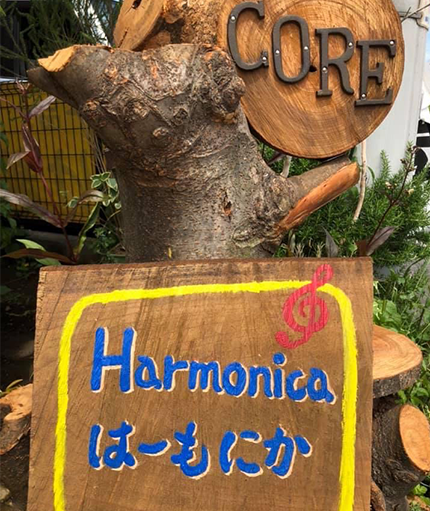 CORE
Harmonica
はーもにか